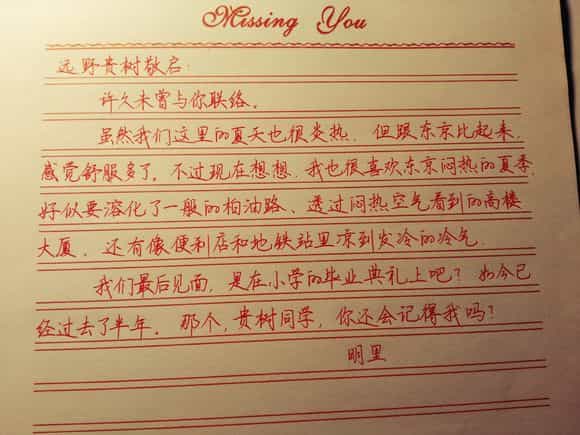 Missing You
远野贵树敬启:
许久未曾与你联络。
虽然我们这里的夏天也很炎热,但跟东京比起来,
感觉舒服多了。不过现在想想,我也很喜欢东京闷热的夏季,
好似要溶化了一般的柏油路、透过闷热空气看到的高楼
大厦,还有像便利店和地铁站里凉到发冷的冷气.
我们最后见面,是在小学的毕业典礼上吧?如今已
经过去了半年。那个,贵树同学,你还会记得我吗?
明里